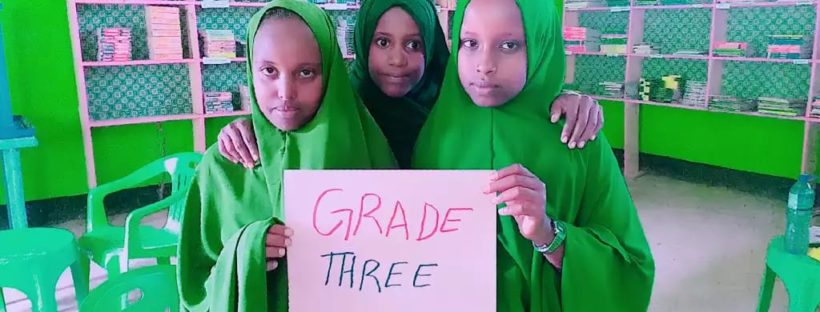 GRADE
THREE